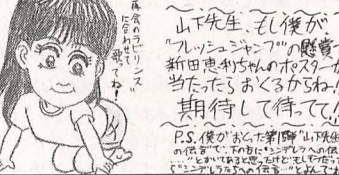 再会のラビリンス
に合わせて
歌ってね!
山下先生、もし僕が
"フレッシュジャンプ"の懸賞で
新田恵利ちゃんのポスターが
当たったらおくるからね!!
期待して待ってて!!
P.S. 僕がおくった第1弾"山下先生
の伝言"で、下の方に"シンデレラへの伝
…"とかいてあると思ったけど
"シンデレラたちへの伝言"